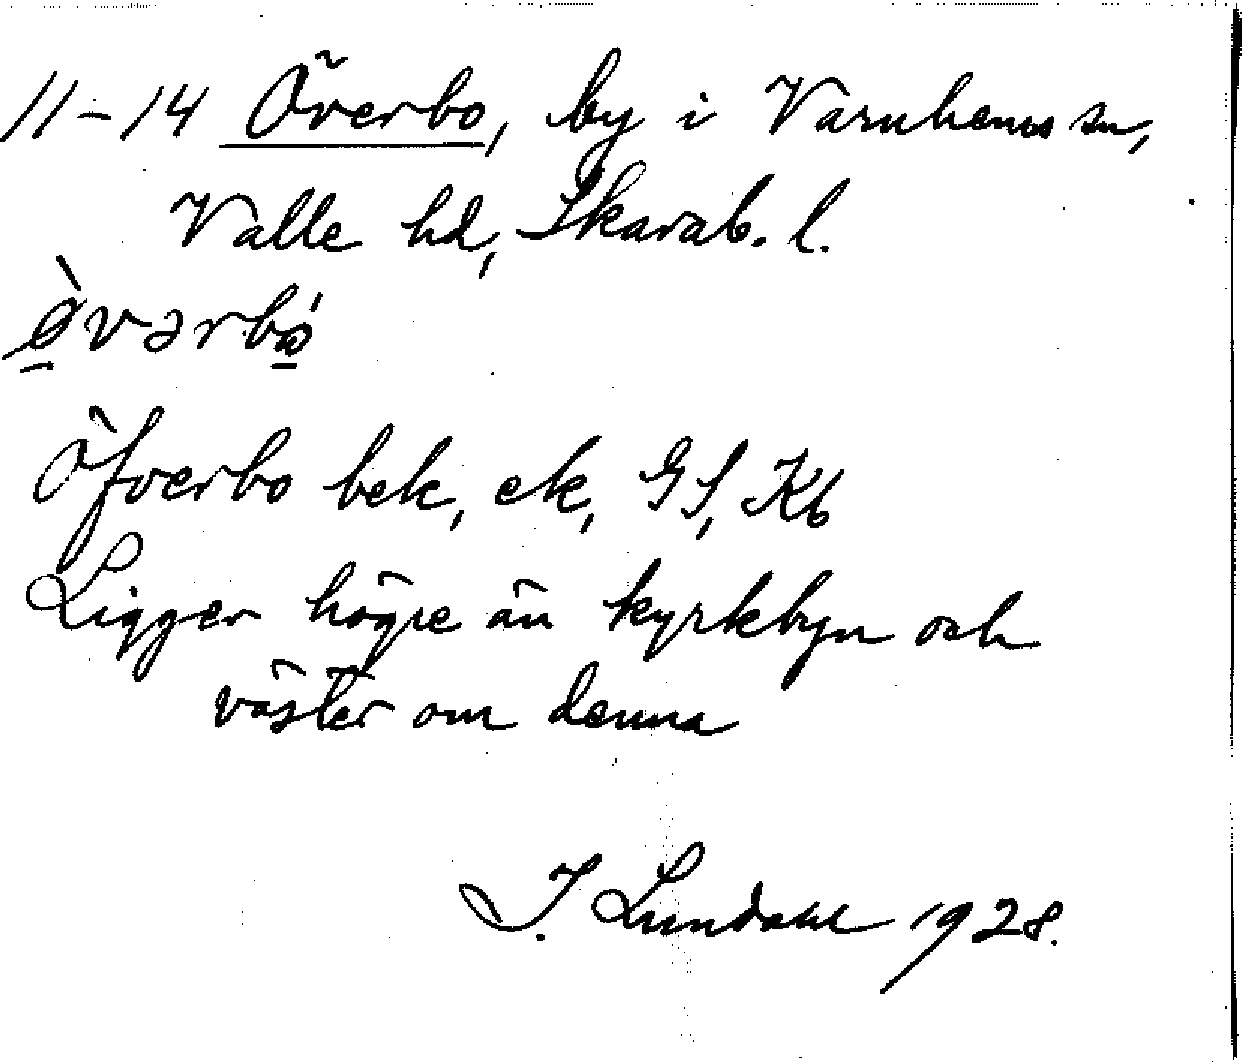 11-14 Överbo, by i Varnhems sn,
Valle hd, Skarab. l.
ø̀vərbó̱
Öfverbo bek, ek, GS, Kb
Ligger högre än kyrkbyn och
väster om denna
I. Lundahl 1928.